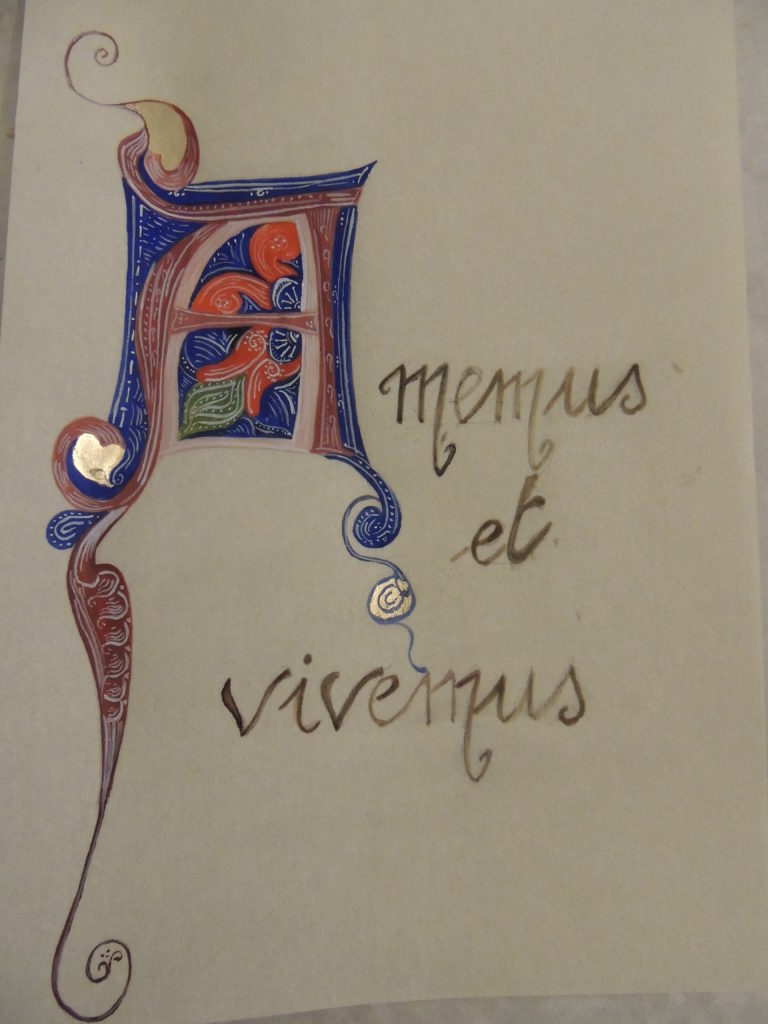 Amemus
et
vivemus